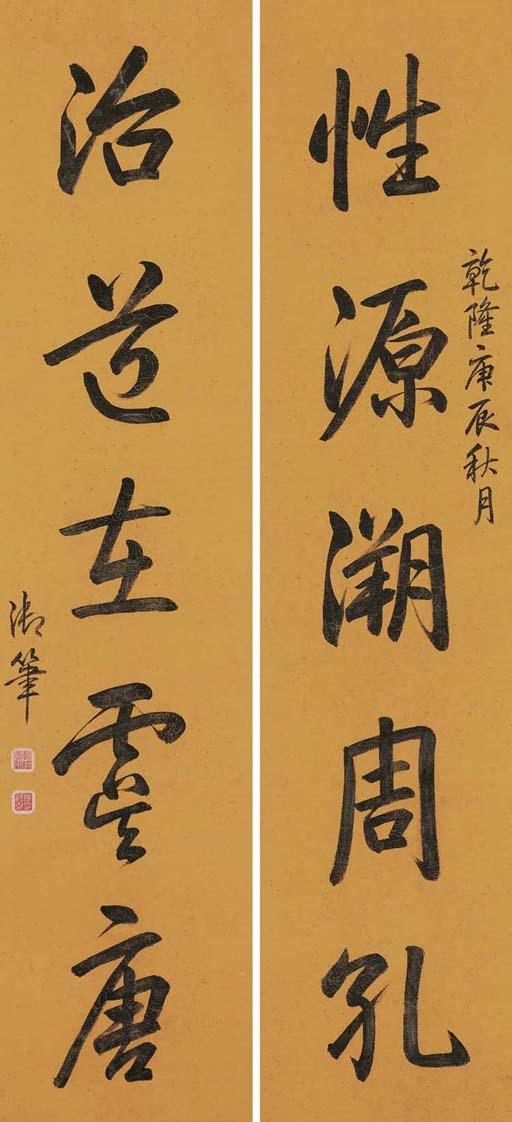 乾隆庚辰秋月
性源溯周孔
治道在虞唐
御筆